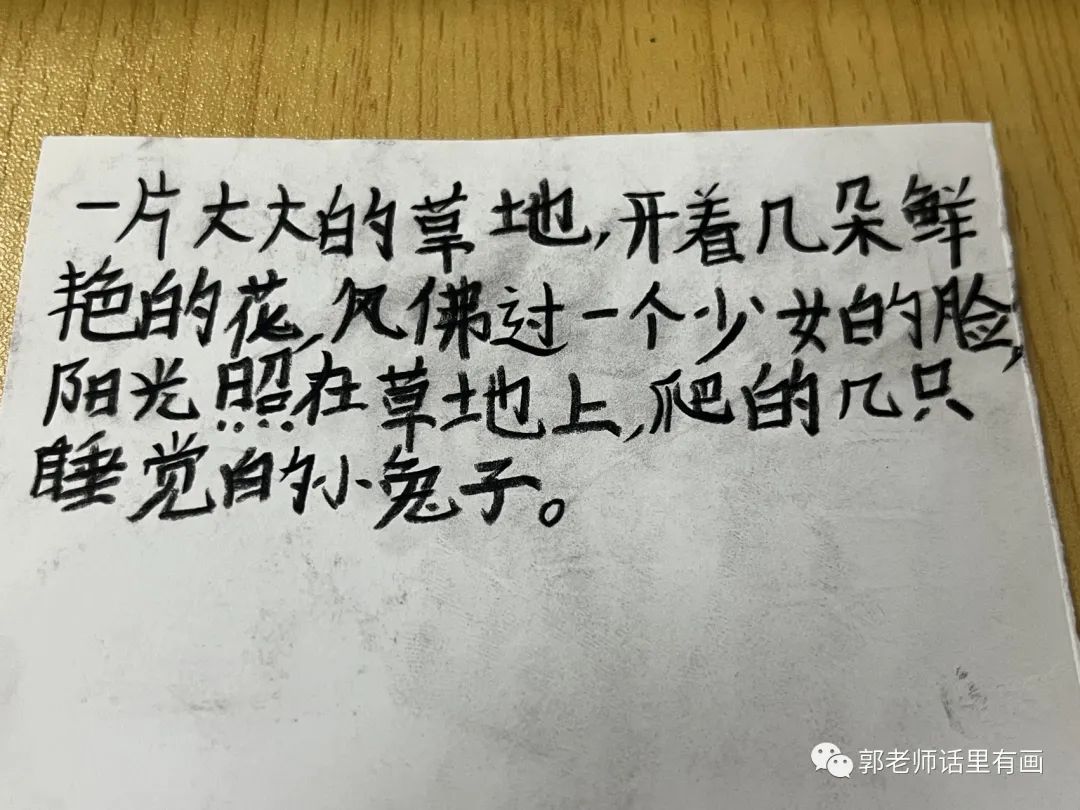 一片大大的草地,开着几朵鲜
艳的花,风佛过一个少女的脸,
阳光照在草地上,爬的几只
睡觉的小兔子。
郭老师话里有画